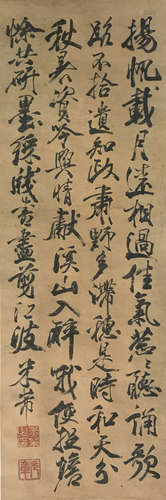 揚帆載月遠相過佳氣葱〻聽誦歌
路不拾遺知政肅野多滯穗是時和天分
秋暑資吟興晴獻溪山入醉哦便捉蟾
蜍共研墨綵牋書盡剪江波 米芾